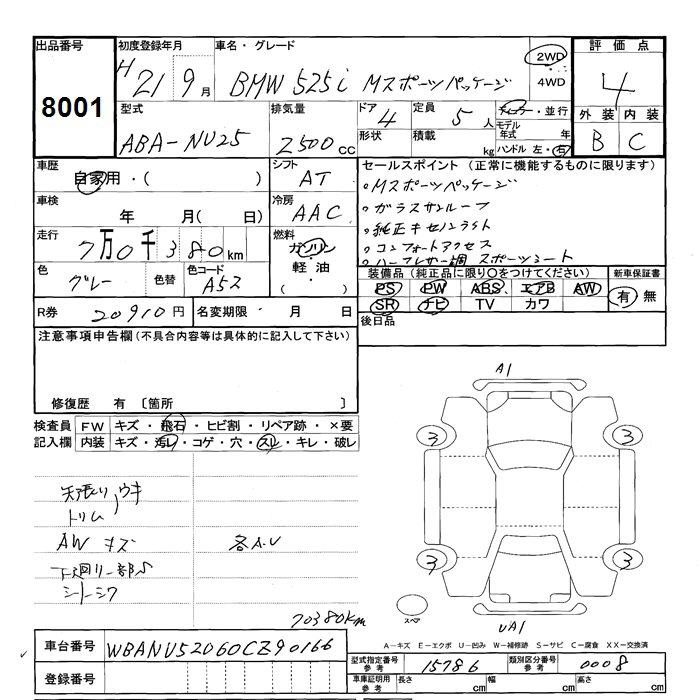 出品番号 初度登録年月 車名・グレード 2WD 評価点
8001 H 21 9月 BMW 525i Mスポーツパッケージ 4WD 4
型式 排気量 ドア 4 定員 5人 ディーラー・並行 外装 内装
ABA-NU25 2500cc 形状 積載 kg モデル年式 年 ハンドル 左・右 B C
車歴 シフト セールスポイント (正常に機能するものに限ります)
自家用・( ) AT ・Mスポーツパッケージ
車検 冷房 ・ガラスサンルーフ
年 月( 日) AAC ・純正キセノンライト
走行 燃料 ・コンフォートアクセス
7万0千380km ガソリン ・ハーフレザー調 スポーツシート
色 色替 色コード 軽油 装備品(純正品に限り○をつけてください) 新車保証書
グレー A52 ・( ) PS PW ABS エアB AW 有 無
SR ナビ TV カワ
R券 20910円 名変期限・ 月 日 後日品
注意事項申告欄(不具合内容等は具体的に記入して下さい)
修復歴 有 〔箇所 〕
検査員 FW キズ・飛石・ヒビ割・リペア跡・×要
記入欄 内装 キズ・汚レ・コゲ・穴・スレ・キレ・破レ
A1
3 3
天張り ウキ
トリム
AW キズ 各A・U
下廻り一部S
シートシワ
3 3
スペア
70380km UA1
A−キズ E−エクボ U−凹み W−補修跡 S−サビ C−腐食 XX−交換済
車台番号 WBANU52060CZ90166
型式指定番号 参考 15786 類別区分番号 参考 0008
登録番号
車庫証明用 参考 長さ cm 幅 cm 高さ cm